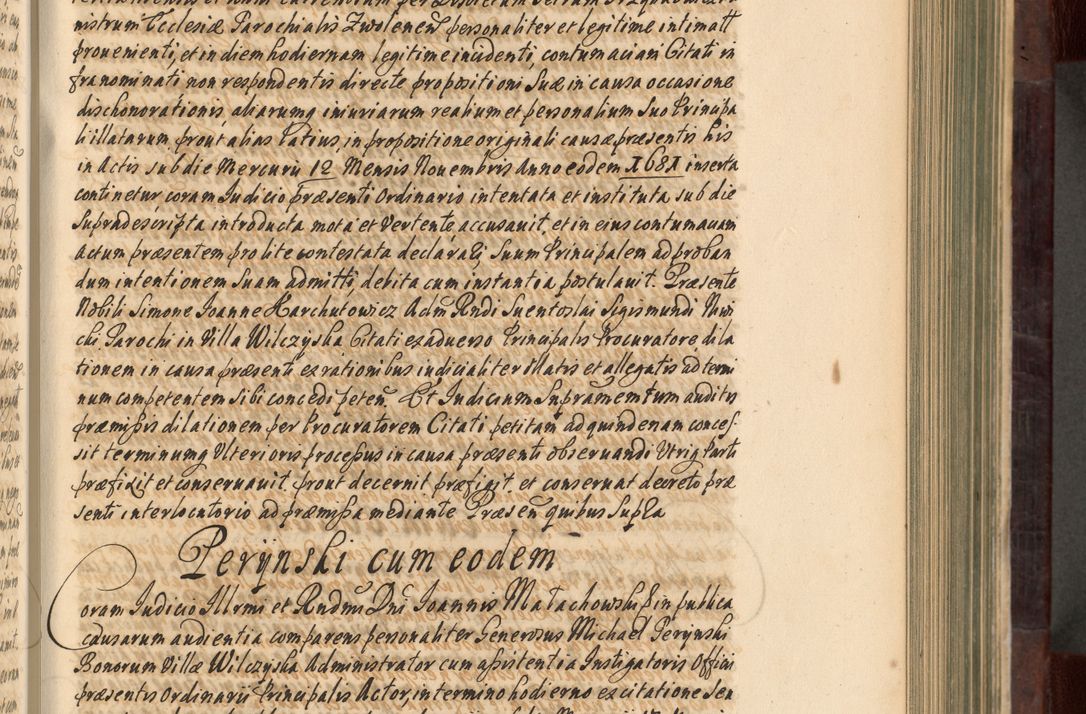 nistrum Ecclesiæ Parochialis Zwolenen personaliter et legitime intimatt
prouenienti, et in diem hodiernam legitime incidenti, contumaciam Citati in
franominati non respondentis directe propositioni Suæ in causa occasione
dischonorationis, aliarumq iniuriarum realium et personalium Suo Principa
li illatarum, prout alias Latius, in propositione originali causæ præsentis his
in Actis sub die Mercurii 12 Mensis Nouembris Anno eodem 1681 inserta
continetur coram Judicio præsenti Ordinario intentata et instituta sub die
Supradescripta introducta mota et Vertente accusauit, et in eius contumaciam
actum præsentem pro lite contestata declarari, Suum Principalem ad proban
dum intentionem Suam admitti, debita cum instantia postulauit. Præsente
Nobili Simone Joanne Harchutowicz Adm Rndi Suentoslai Sigismundi Nowi
chi Parochi in Villa Wilczyska Citati ex aduerso Principalis Procuratore dila
tionem in causa præsenti ex rationibus iudicialiter illatis et allegatis ad termi
num competentem sibi concedi peten. Et Judicium Supramemtum auditis
præmissis dilationem per Procuratorem Citati petitam ad quindenam conces
sit terminumq Ulterioris processus in causa præsenti obseruandi Utriq Parti
præfixit et conseruauit. prout decernit præfigit et conseruat decreto præ
senti interlocutorio ad præmissa mediante Præsen quibus Supra
Perynski cum eodem
Coram Judicio Illrmi et Rndmi Dni Joannis Małachowski in publica
causarum audientia comparens personaliter Generosus Michael Perynski
Bonorum Villæ Wilczyska Administrator cum assistentia Instigatoris Officii
præsentis Ordinarii Principalis Actor, in termino hodierno ex citatione Sen